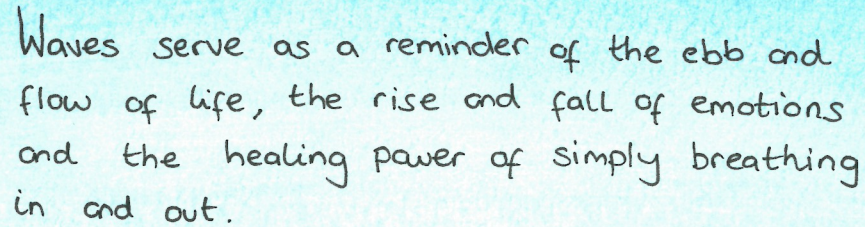 Waves serve as a reminder of the ebb and
flow of life, the rise and fall of emotions
and the healing power of simply breathing
in and out.